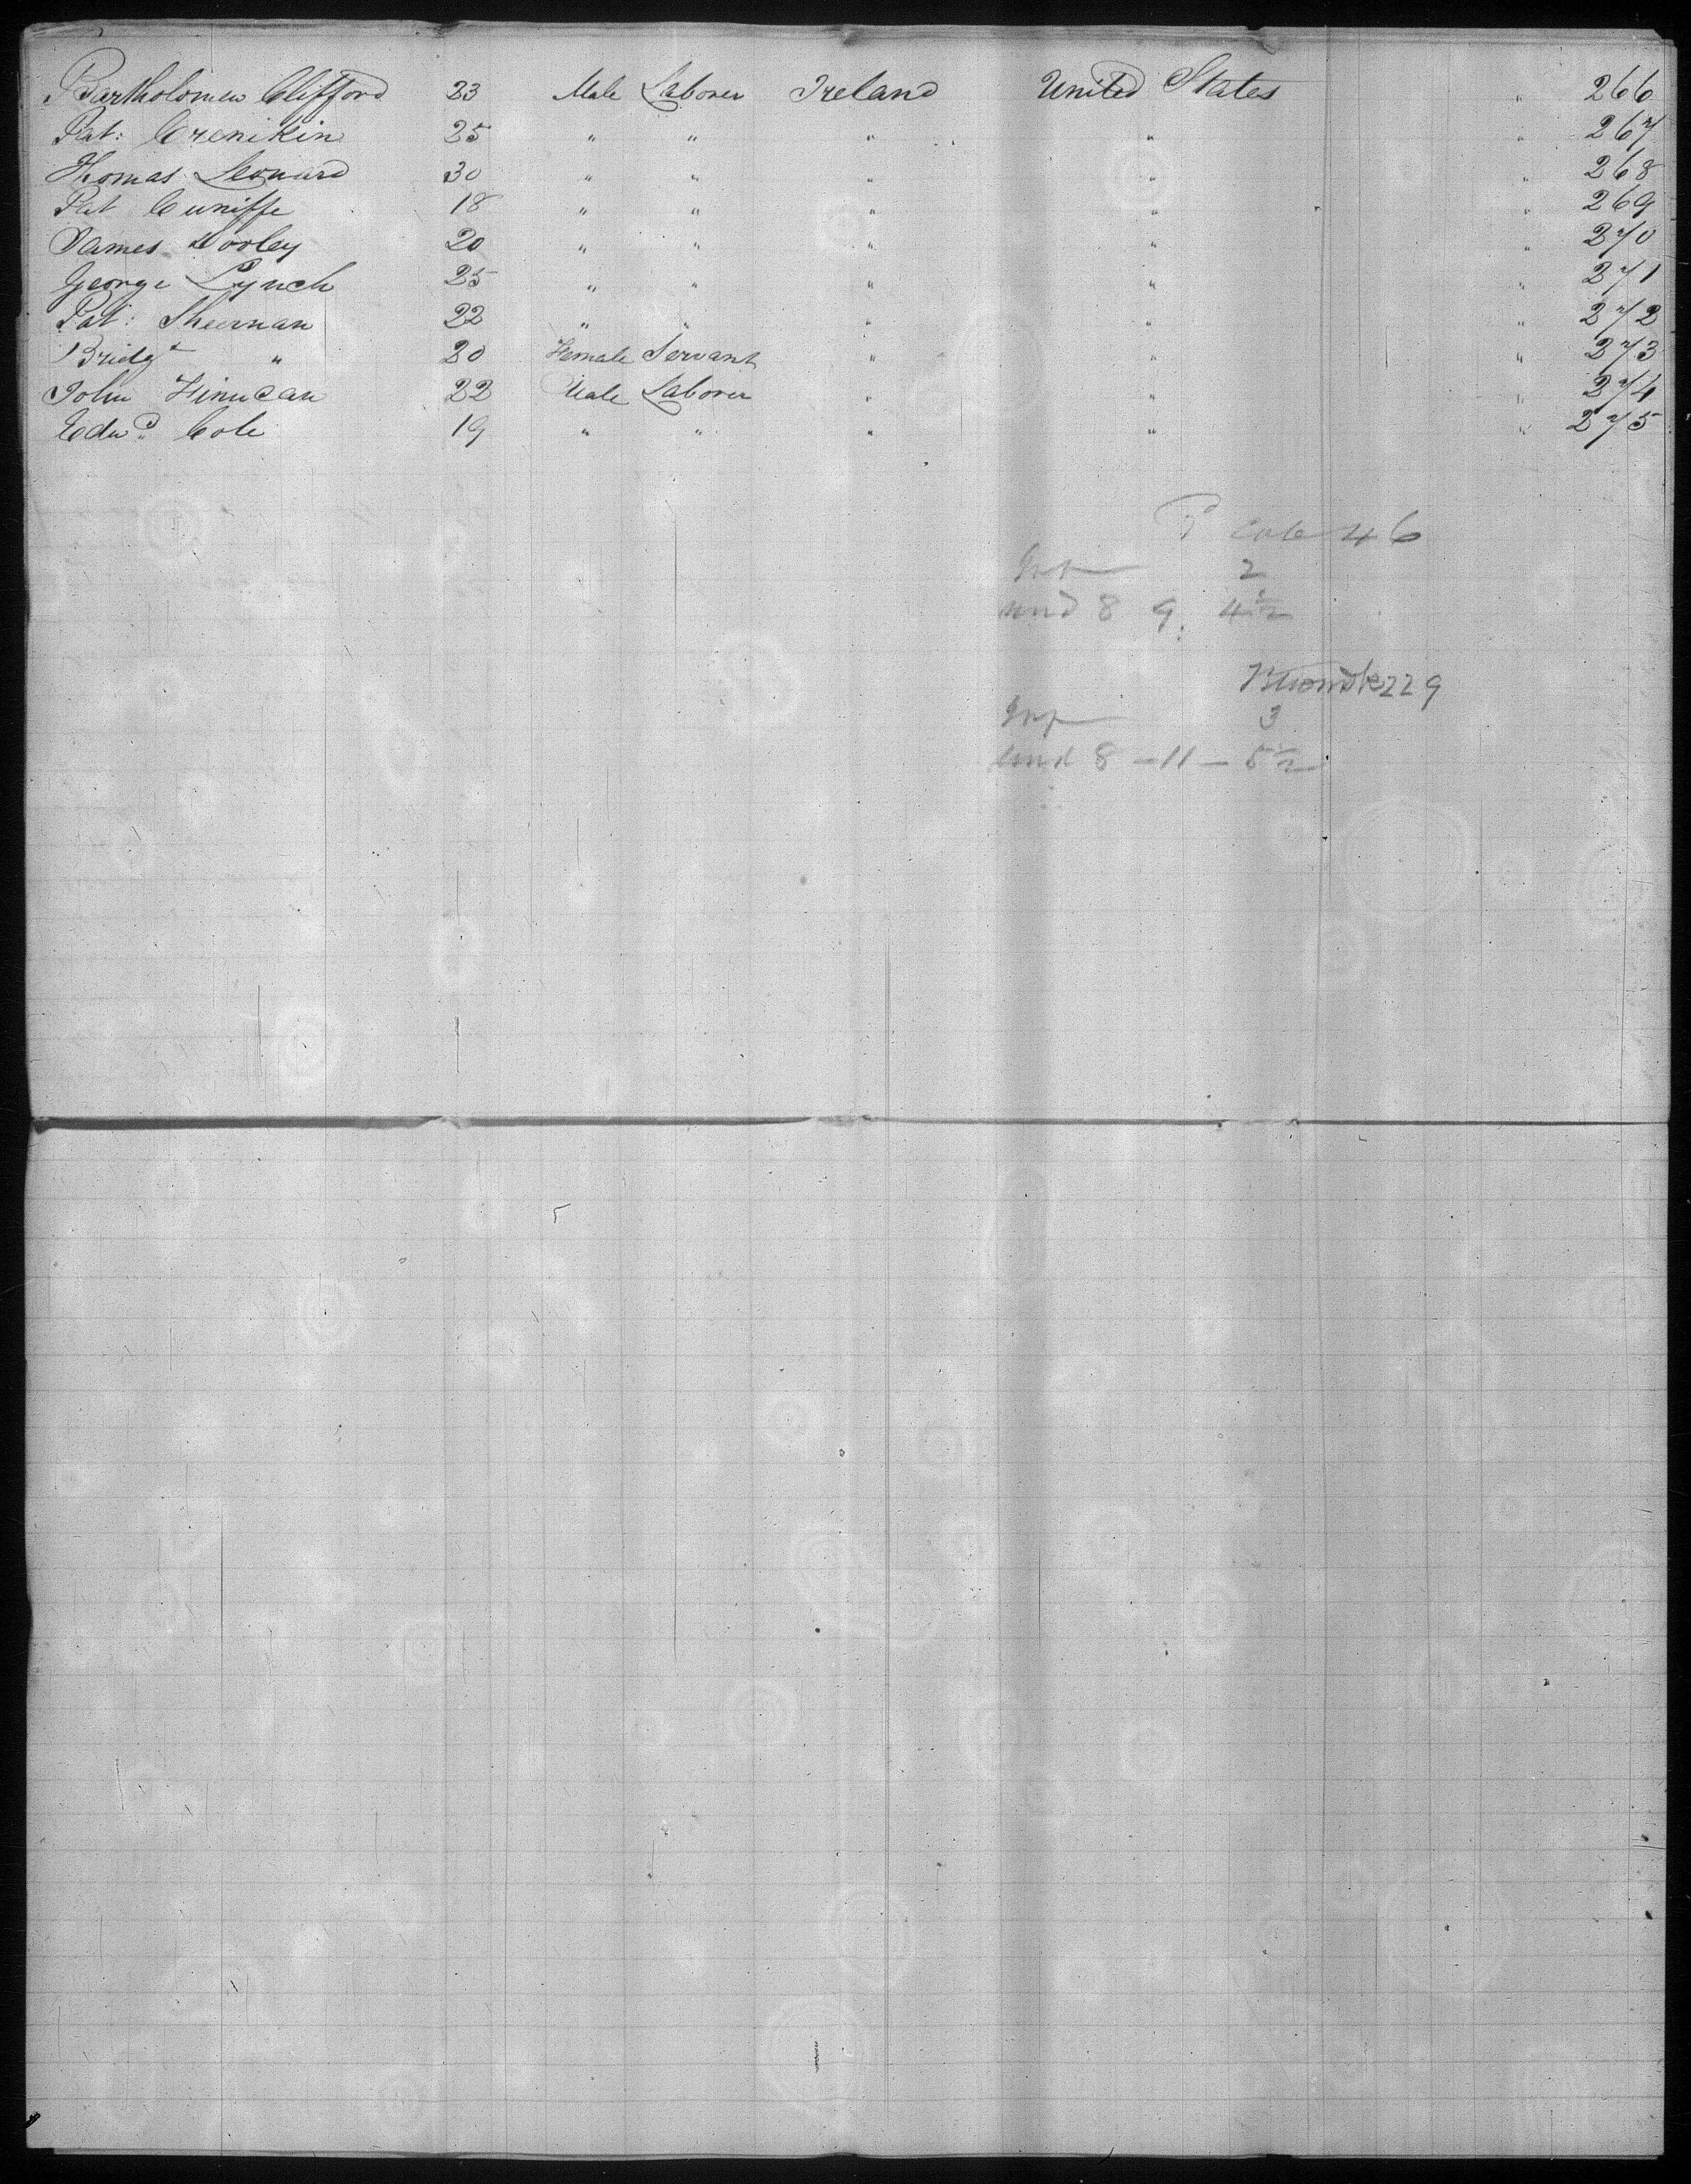 Bartholomew Clifford 23 Male Laborer Ireland United States " 266
Pat: Crenikin 25 " " " " " 267
Thomas Leonard 30 " " " " " 268
Pat Cuniffe 18 " " " " " 269
James Dooley 20 " " " " " 270
George Lynch 25 " " " " " 271
Pat: Sheernan 22 " " " " " 272
Bridgt " 20 Female Servant " " " 273
John Finucan 22 Male Laborer " " " 274
Edwd Cole 19 " " " " " 275
Cole 46
2
8 9. 4 1/2
229
3
8 - 11 - 5 1/2